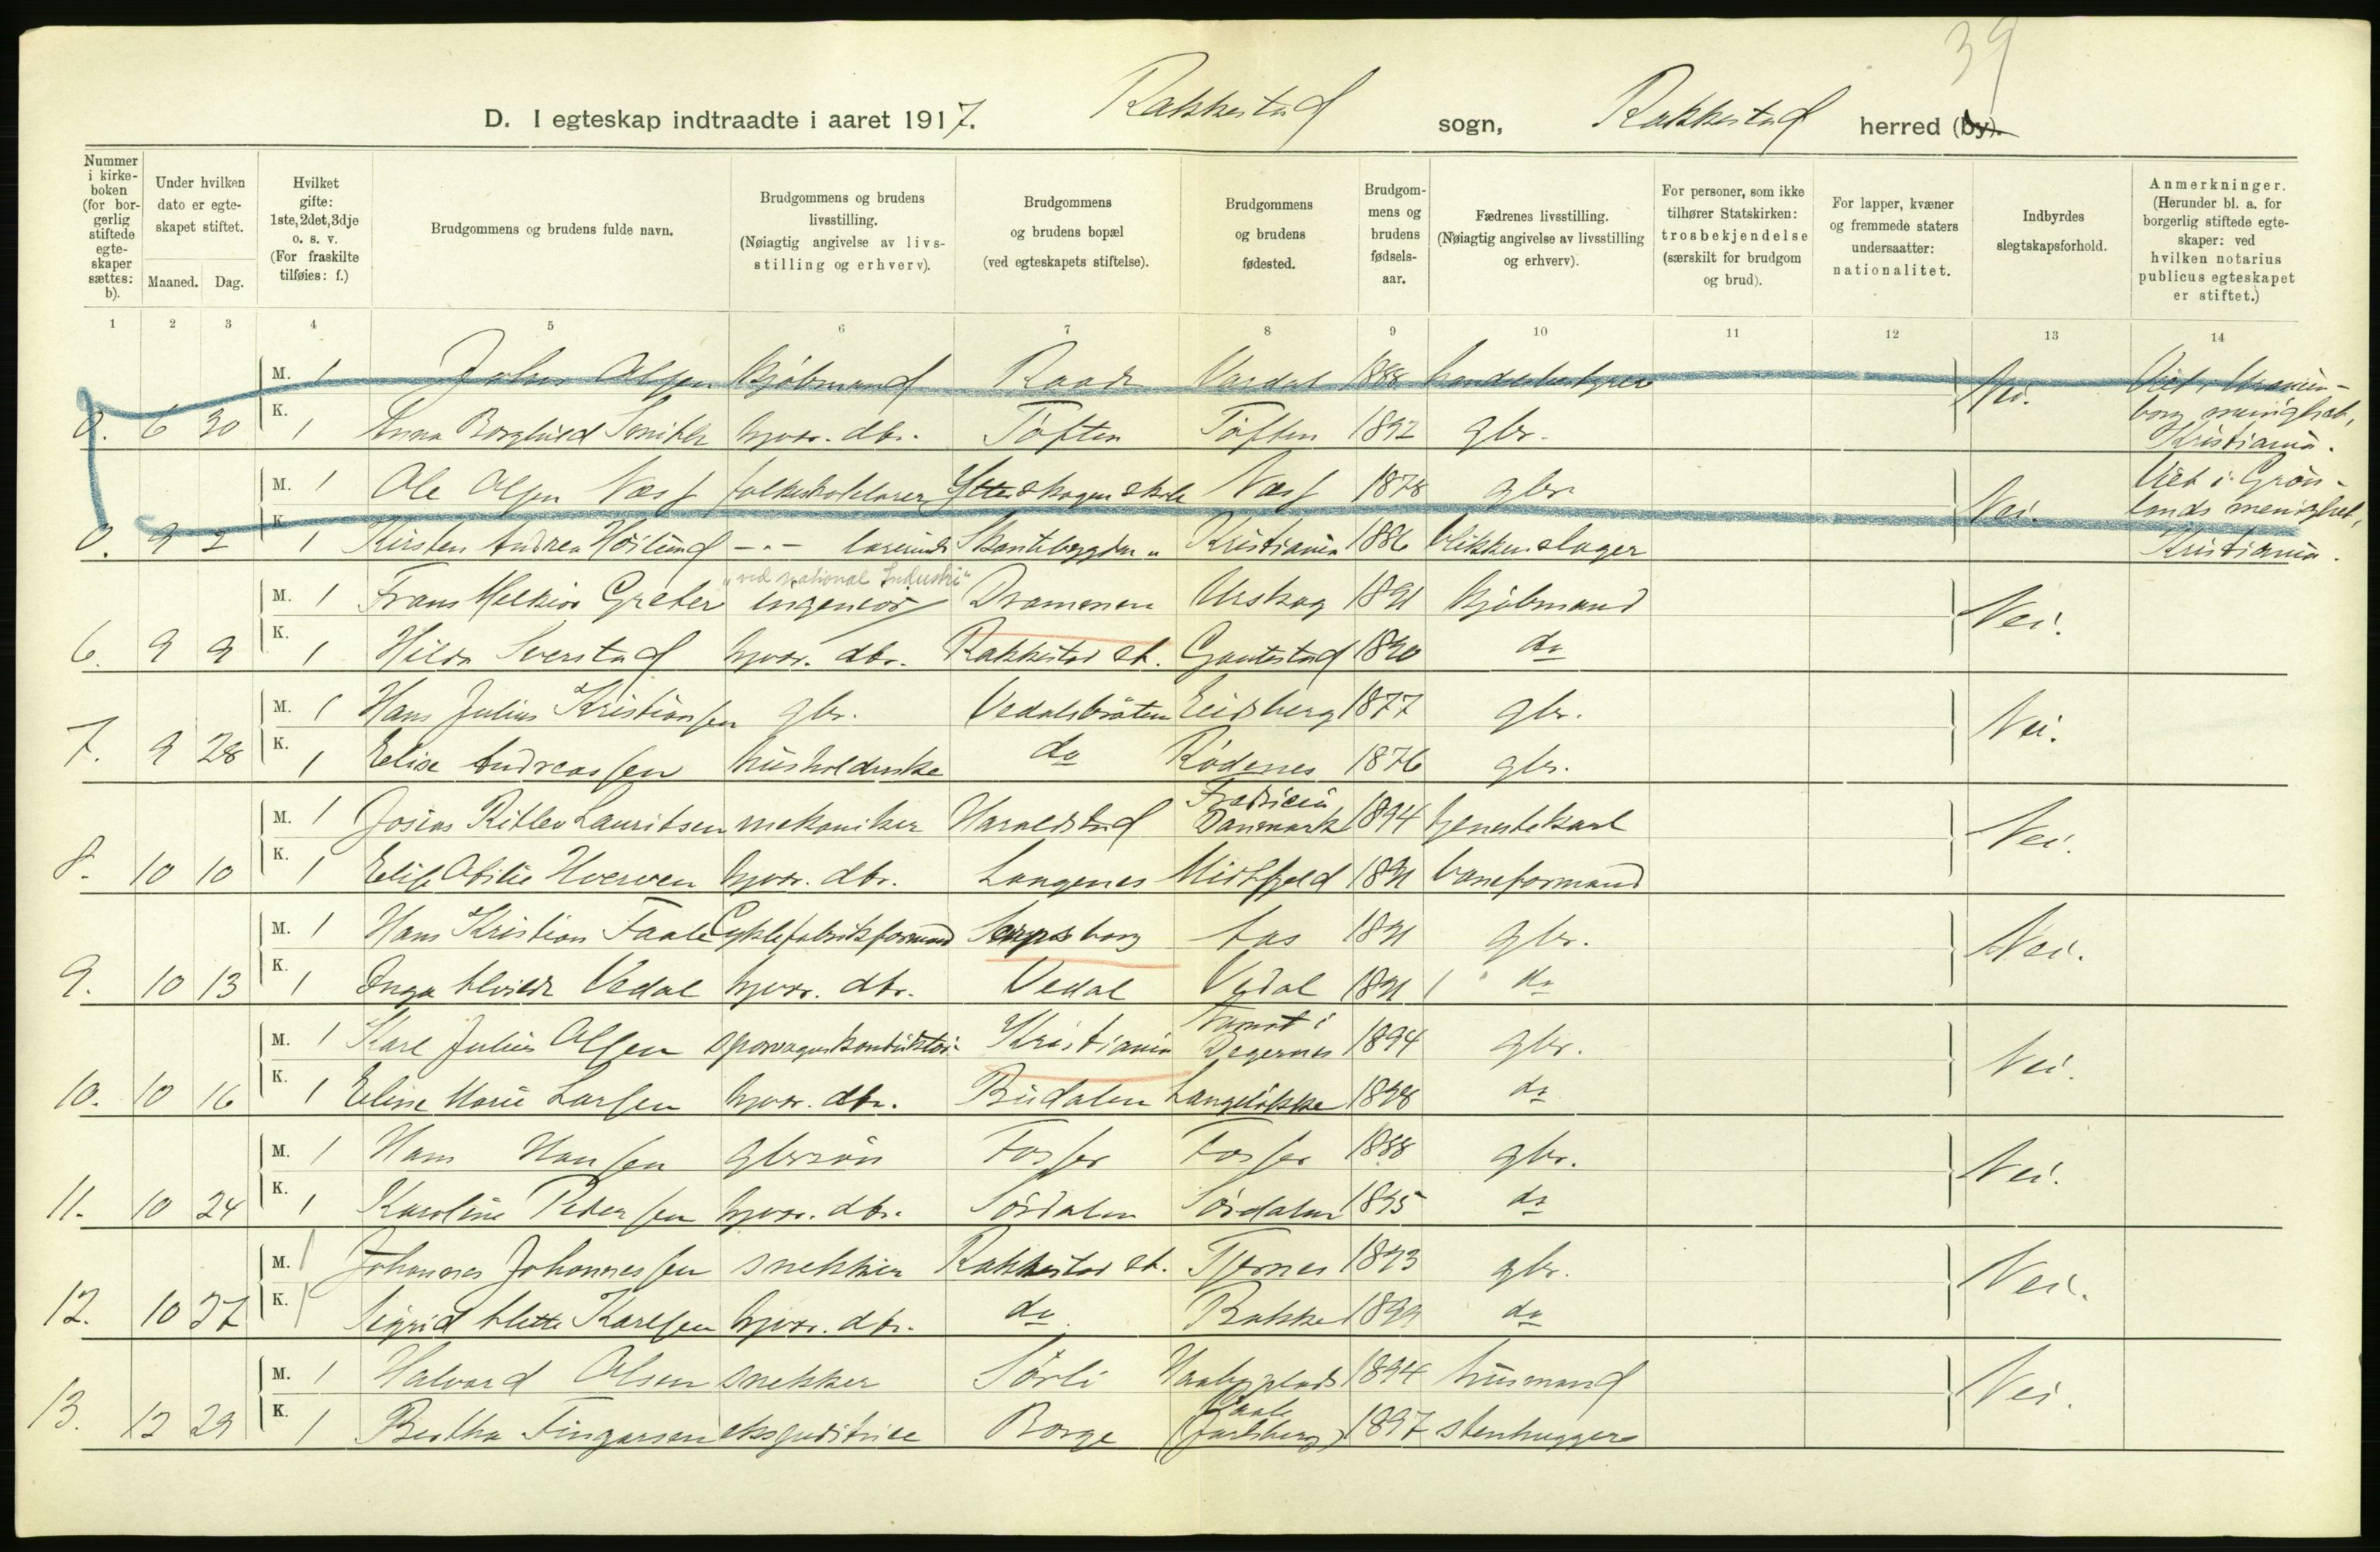 39
D. I egteskap indtraadte i aaret 1917. Rakkestad sogn, Rakkestad herred (by).
Nummer i kirke-boken (for bor-gerlig stiftede egte-skaper sættes: b).
Under hvilken dato er egte-skapet stiftet.
Maaned. Dag.
Hvilket gifte: 1ste, 2det, 3dje o. s. v. (For fraskilte tilføies: f.)
Brudgommens og brudens fulde navn.
Brudgommens og brudens livsstilling. (Nøiagtig angivelse av livs-stilling og erhverv).
Brudgommens og brudens bopæl (ved egteskapets stiftelse).
Brudgommens og brudens fødested.
Brudgom-mens og brudens fødsels-aar.
Fædrenes livsstilling. (Nøiagtig angivelse av livsstilling og erhverv).
For personer, som ikke tilhører Statskirken: trosbekjendelse (særskilt for brudgom og brud).
For lapper, kvæner og fremmede staters undersaatter: nationalitet.
Indbyrdes slegtskapsforhold.
Anmerkninger. (Herunder bl. a. for borgerlig stiftede egte-skaper: ved hvilken notarius publicus egteskapet er stiftet.)
1 2 3 4 5 6 7 8 9 10 11 12 13 14
M. 1 Johan Olsen Kjøbmand Raade 1888 Nei. Viet i Uranien-
0. 6 30 K. 1 Anna Borghild hjvær. dtr. Toften Toften 1892 gbr. borg menighet,
Kristiania.
M. 1 Ole Olsen Næss folkeskolelærer Ytterskogen skole Næss 1878 gbr. Nei. Viet i Grøn-
0. 9 2 K. 1 Kirsten Andrea Høilund -"- lærerinde Kristiania 1886 blikkenslager lands menighet,
Kristiania.
"ved national Industri"
M. 1 Frans Melkior Greter ingeniør Drammen Urskog 1891 Kjøbmand Nei.
6. 9 9 K. 1 Hilda Sverstad hjvær. dtr. Rakkestad st. Gautestad 1890 do
M. 1 Hans Julius Kristiansen gbr. Vedalsbråten Eidsberg 1877 gbr. Nei.
7. 9 28 K. 1 Elise Andreassen husholderske do Rødenes 1876 gbr.
M. 1 Josias Ditlev Lauritsen mekaniker Haraldstad Fredricia Danmark 1894 tjenestekarl Nei.
8. 10 10 K. 1 Elise Otilie Hverven hjvær. dtr. Langenes Mistfjeld 1891 baneformand
M. 1 Hans Kristian Faale Cyklefabrikformand Sarpsborg Aas 1891 gbr. Nei.
9. 10 13 K. 1 Inga Alvilde Vedal hjvær. dtr. Vedal Vedal 1891 do
M. 1 Karl Julius Olsen sporvognskonduktør Kristiania i Degernes 1894 gbr. Nei.
10. 10 16 K. 1 Eline Marie Larsen hjvær. dtr. Budalen Langeløkke 1898 do
M. 1 Hans Hansen gbrsøn Fosser Fosser 1888 gbr. Nei.
11. 10 24 K. 1 Karoline Pedersen hjvær. dtr. Sørdalen Sørdalen 1895 do
M. 1 Johannes Johannessen snekker Rakkestad st. Tjernes 1893 gbr. Nei.
12. 10 27 K. 1 Sigrid Alette Karlsen hjvær. dtr. do Bakke 1899 do
M. 1 Halvard Olsen snekker Sørli 1894 husmand Nei.
13. 12 29 K. 1 Bertha Fingarsen ekspeditrice Borge Vaale (Jarlsberg) 1897 stenhugger